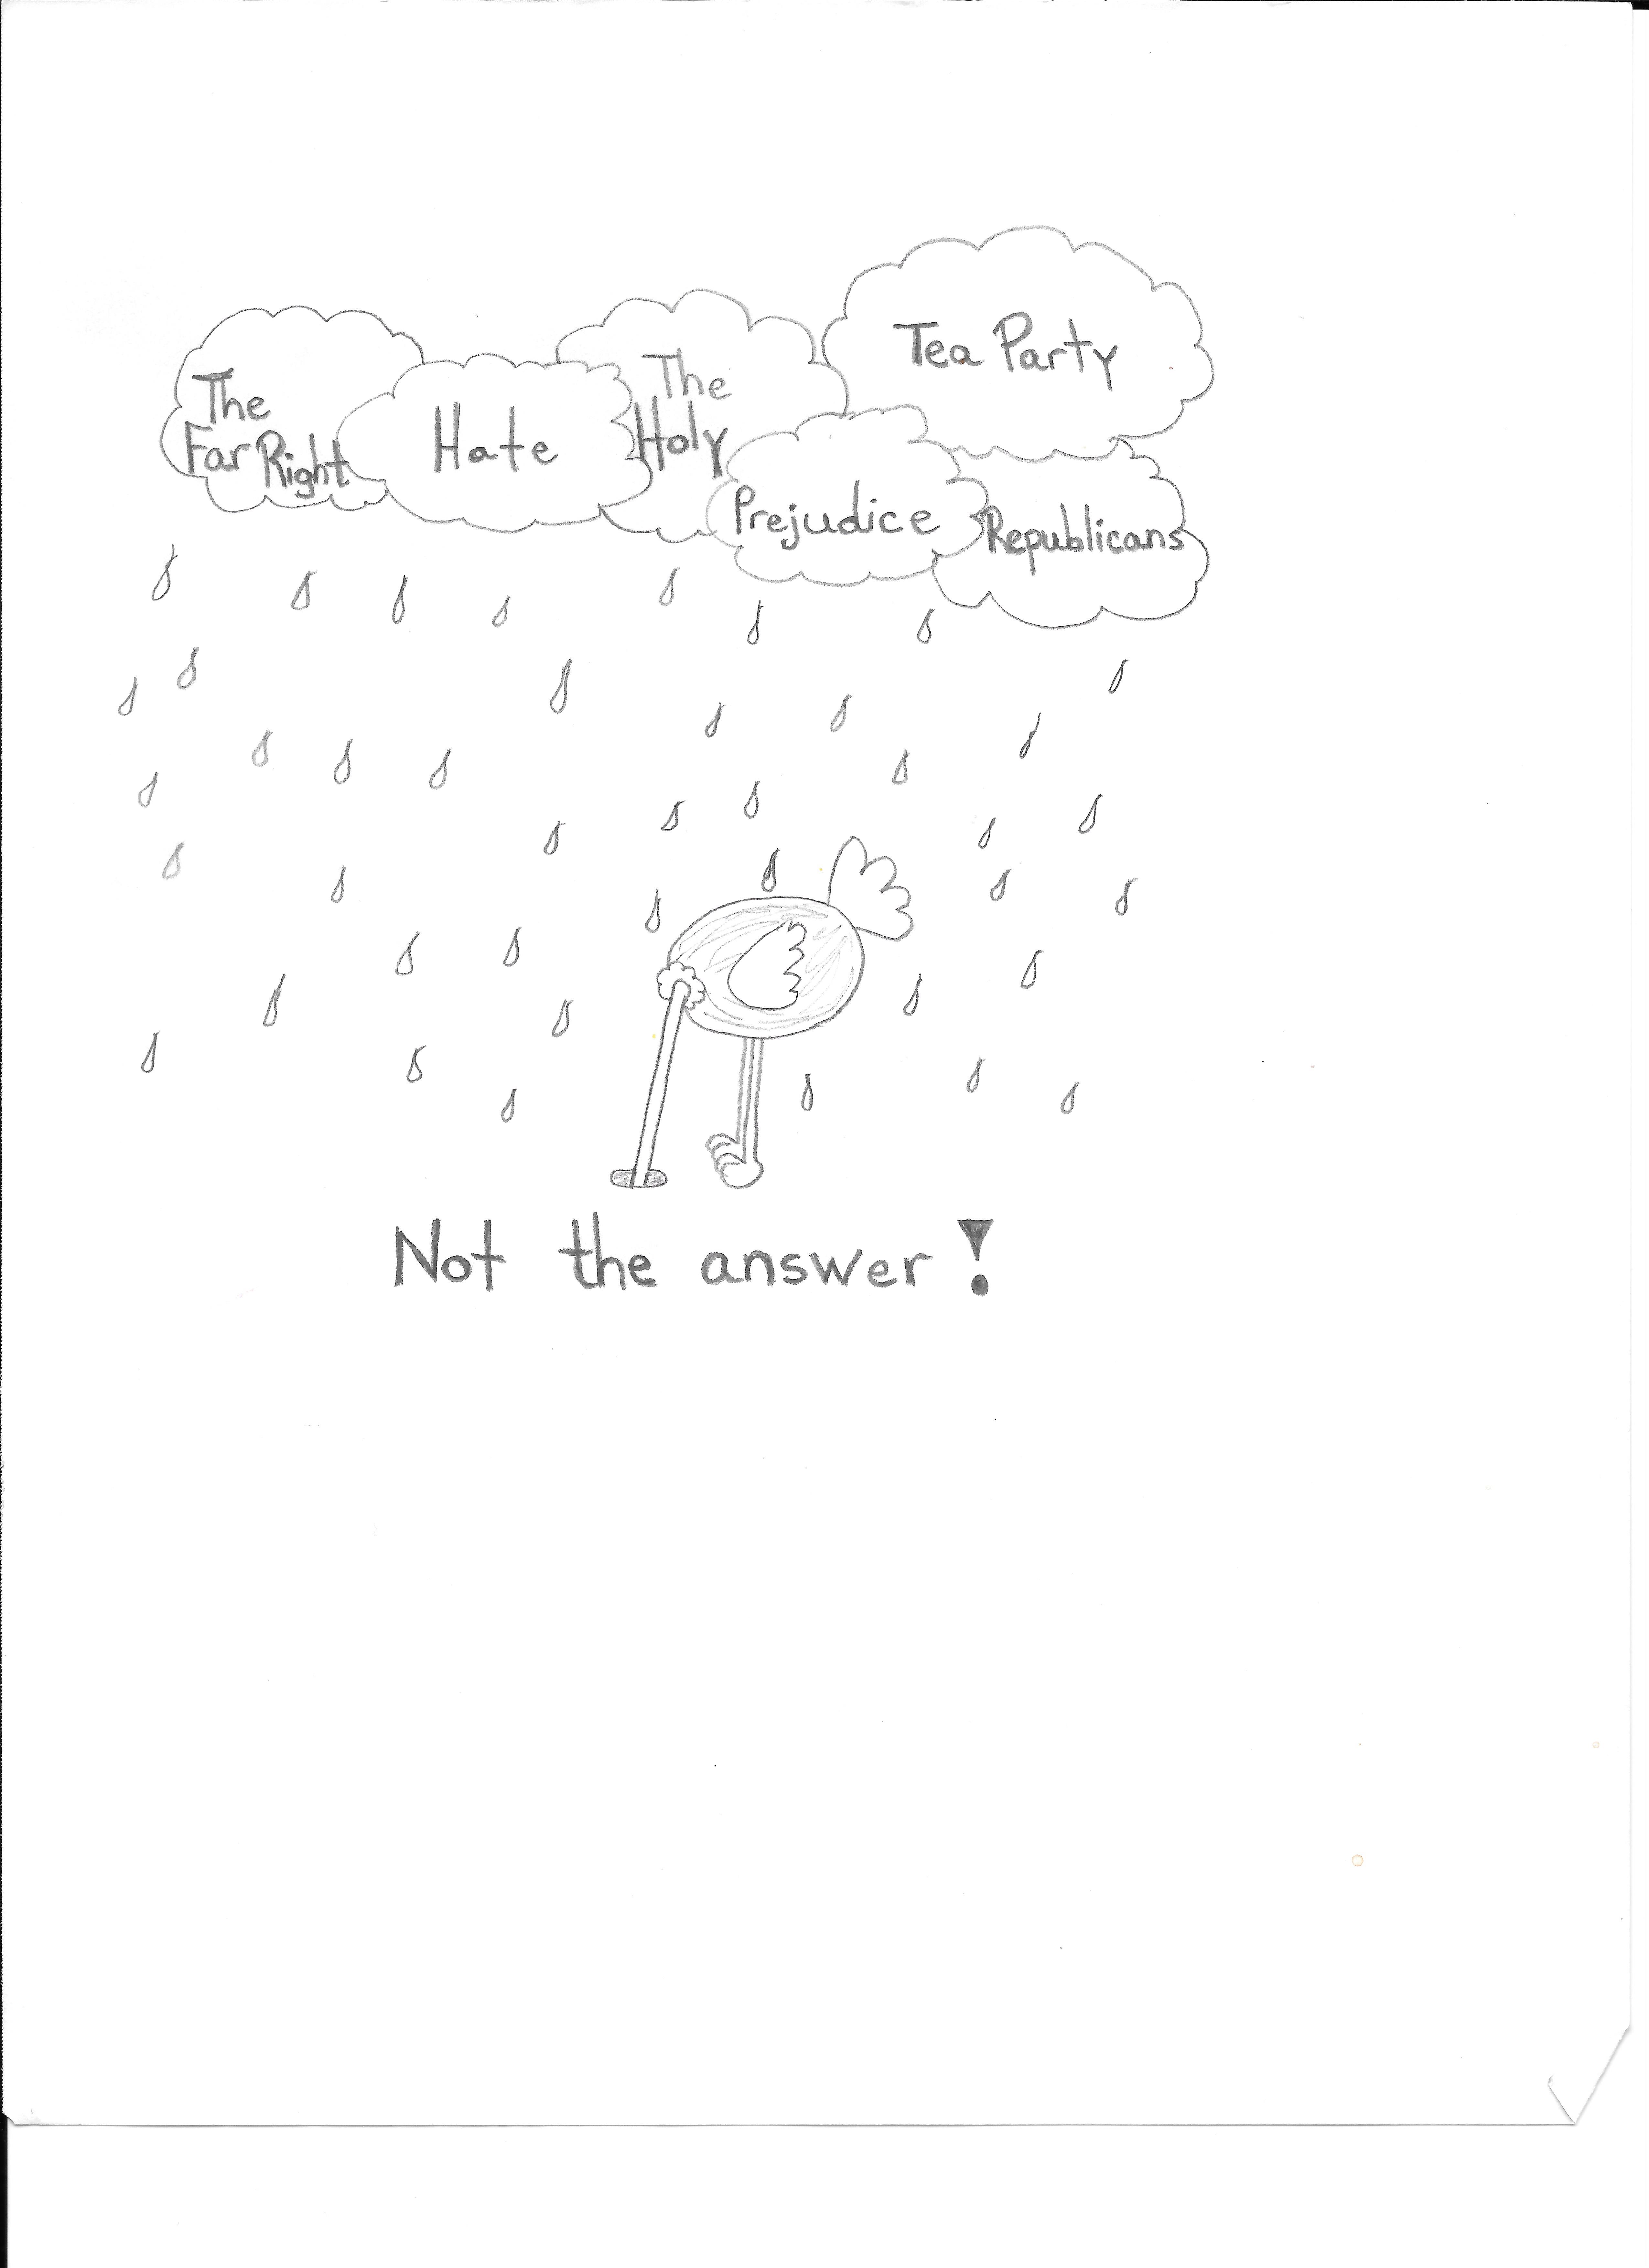 The
Far Right
Hate
The
Holy
Tea Party
Prejudice
Republicans
Not the answer!